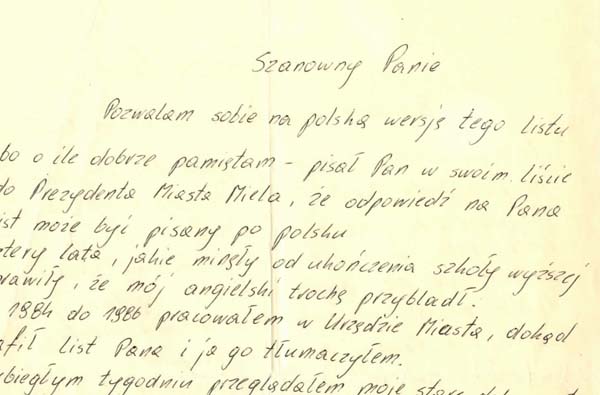 Szanowny Panie
Pozwalam sobie na polską wersję tego listu
bo o ile dobrze pamiętam - pisał Pan w swoim liście
do Prezydenta Miasta Miela, że odpowiedź na Pana
ist może być pisany po polsku
ztery lata, jakie minęły od ukończenia szkoły wyższej
rawiły, że mój angielski trochę przybladł.
1984 do 1986 pracowałem w Urzędzie Miasta, dokąd
afił list Pana i ja go tłumaczyłem.
biegłym tygodniu przeglądałem moje stare